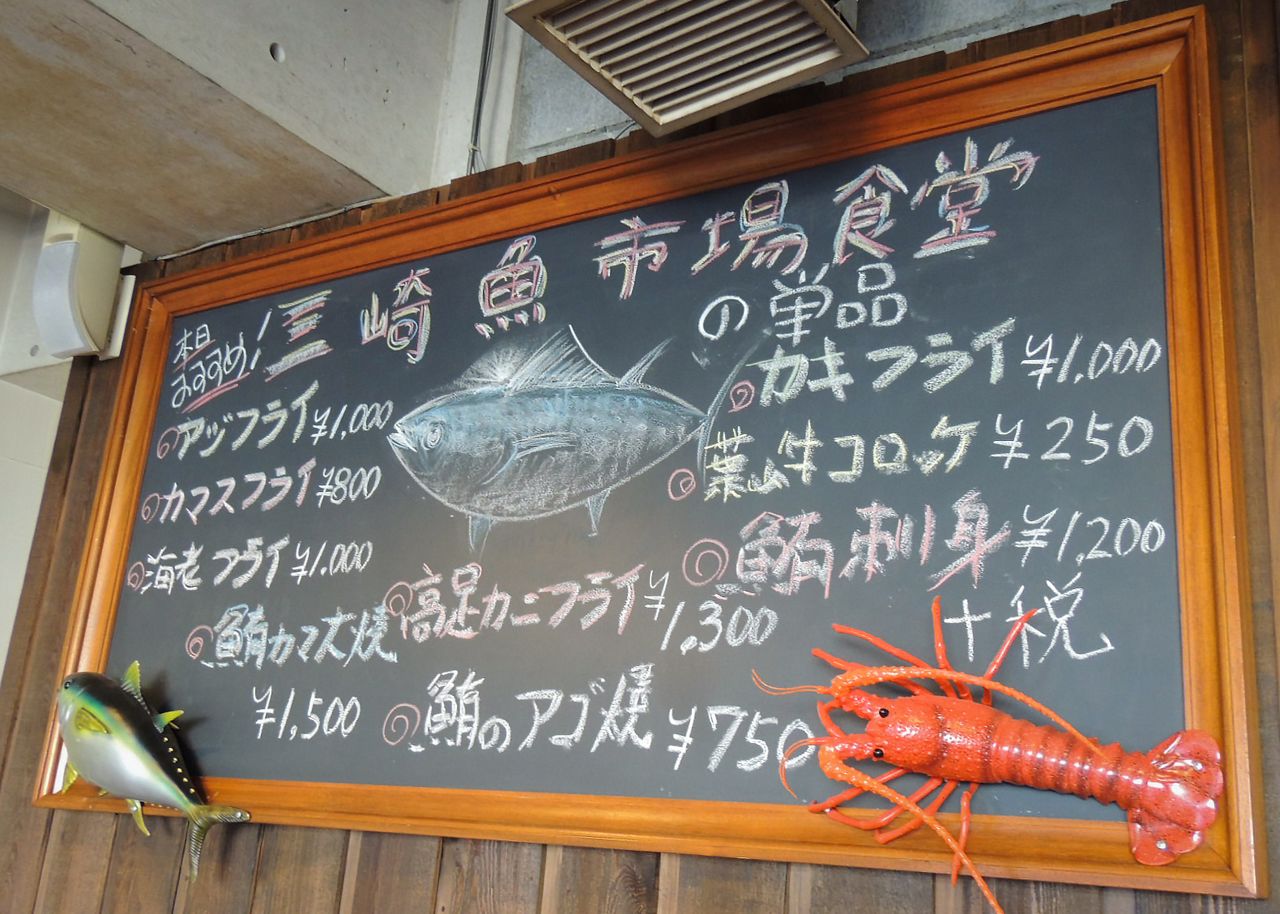 本日
おすすめ!
三崎魚市場食堂
の単品
アジフライ ¥1,000
カマスフライ ¥800
海老フライ ¥1,000
鮪カマ大焼
¥1,500
高足カニフライ ¥1,300
鮪のアゴ焼 ¥750
カキフライ ¥1,000
葉山牛コロッケ ¥250
鮪刺身 ¥1,200
+税